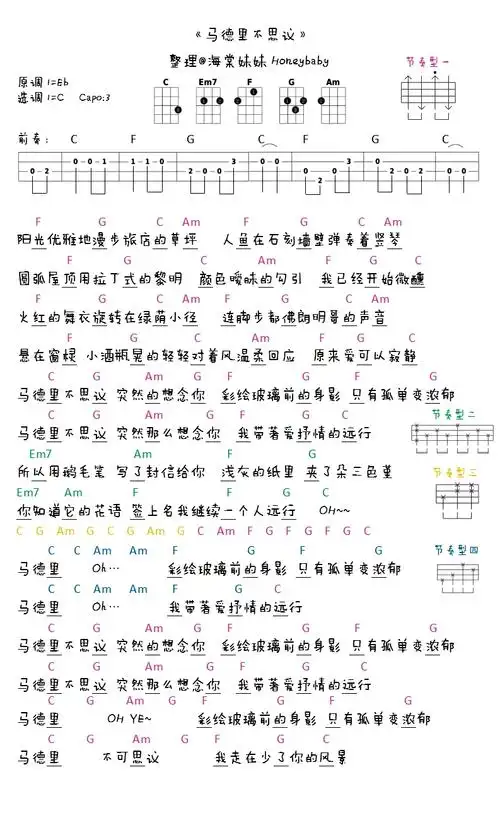 《马德里不思议》
整理@海棠妹妹 Honeybaby
节奏型一
原调 1=Eb
选调 1=C Capo:3
C Em7 F G Am
前奏: C F G C F G C
0 0 0 1 1 1 0 2 0 0 3 0 0 0 2 0 3 2 0 0 2 0 0
F G C Am F G C Am
阳光优雅地漫步旅店的草坪 人鱼在石刻墙壁弹奏着竖琴
F G C Am F G C
圆弧屋顶用拉丁式的黎明 颜色暧昧的勾引 我已经开始微醺
F G C Am F G C Am
火红的舞衣旋转在绿荫小径 连脚步都佛朗明哥的声音
F G C Am F G C
悬在窗棂 小酒瓶晃的轻轻对着风温柔回应 原来爱可以寂静
C G Am G F G F G
马德里不思议 突然的想念你 彩绘玻璃前的身影 只有孤单变浓郁
C G Am G F G C
马德里不思议 突然那么想念你 我带著爱抒情的远行
节奏型二
Em7 Am F G
所以用鹅毛笔 写了封信给你 浅灰的纸里 夹了朵三色堇
节奏型三
Em7 Am F G C
你知道它的花语 签上名我继续一个人远行 OH~~
C G Am G C G Am G C Am F G F G F G C
C C Am Am F G F G
节奏型四
马德里 Oh… 彩绘玻璃前的身影 只有孤单变浓郁
C C Am Am F G C
马德里 Oh… 我带著爱抒情的远行
C G Am G F G F G
马德里不思议 突然的想念你 彩绘玻璃前的身影 只有孤单变浓郁
C G Am G F G C
马德里不思议 突然那么想念你 我带著爱抒情的远行
C G Am G F G F G
马德里 OH YE~ 彩绘玻璃前的身影 只有孤单变浓郁
C G Am G F G C
马德里 不可思议 我走在少了你的风景